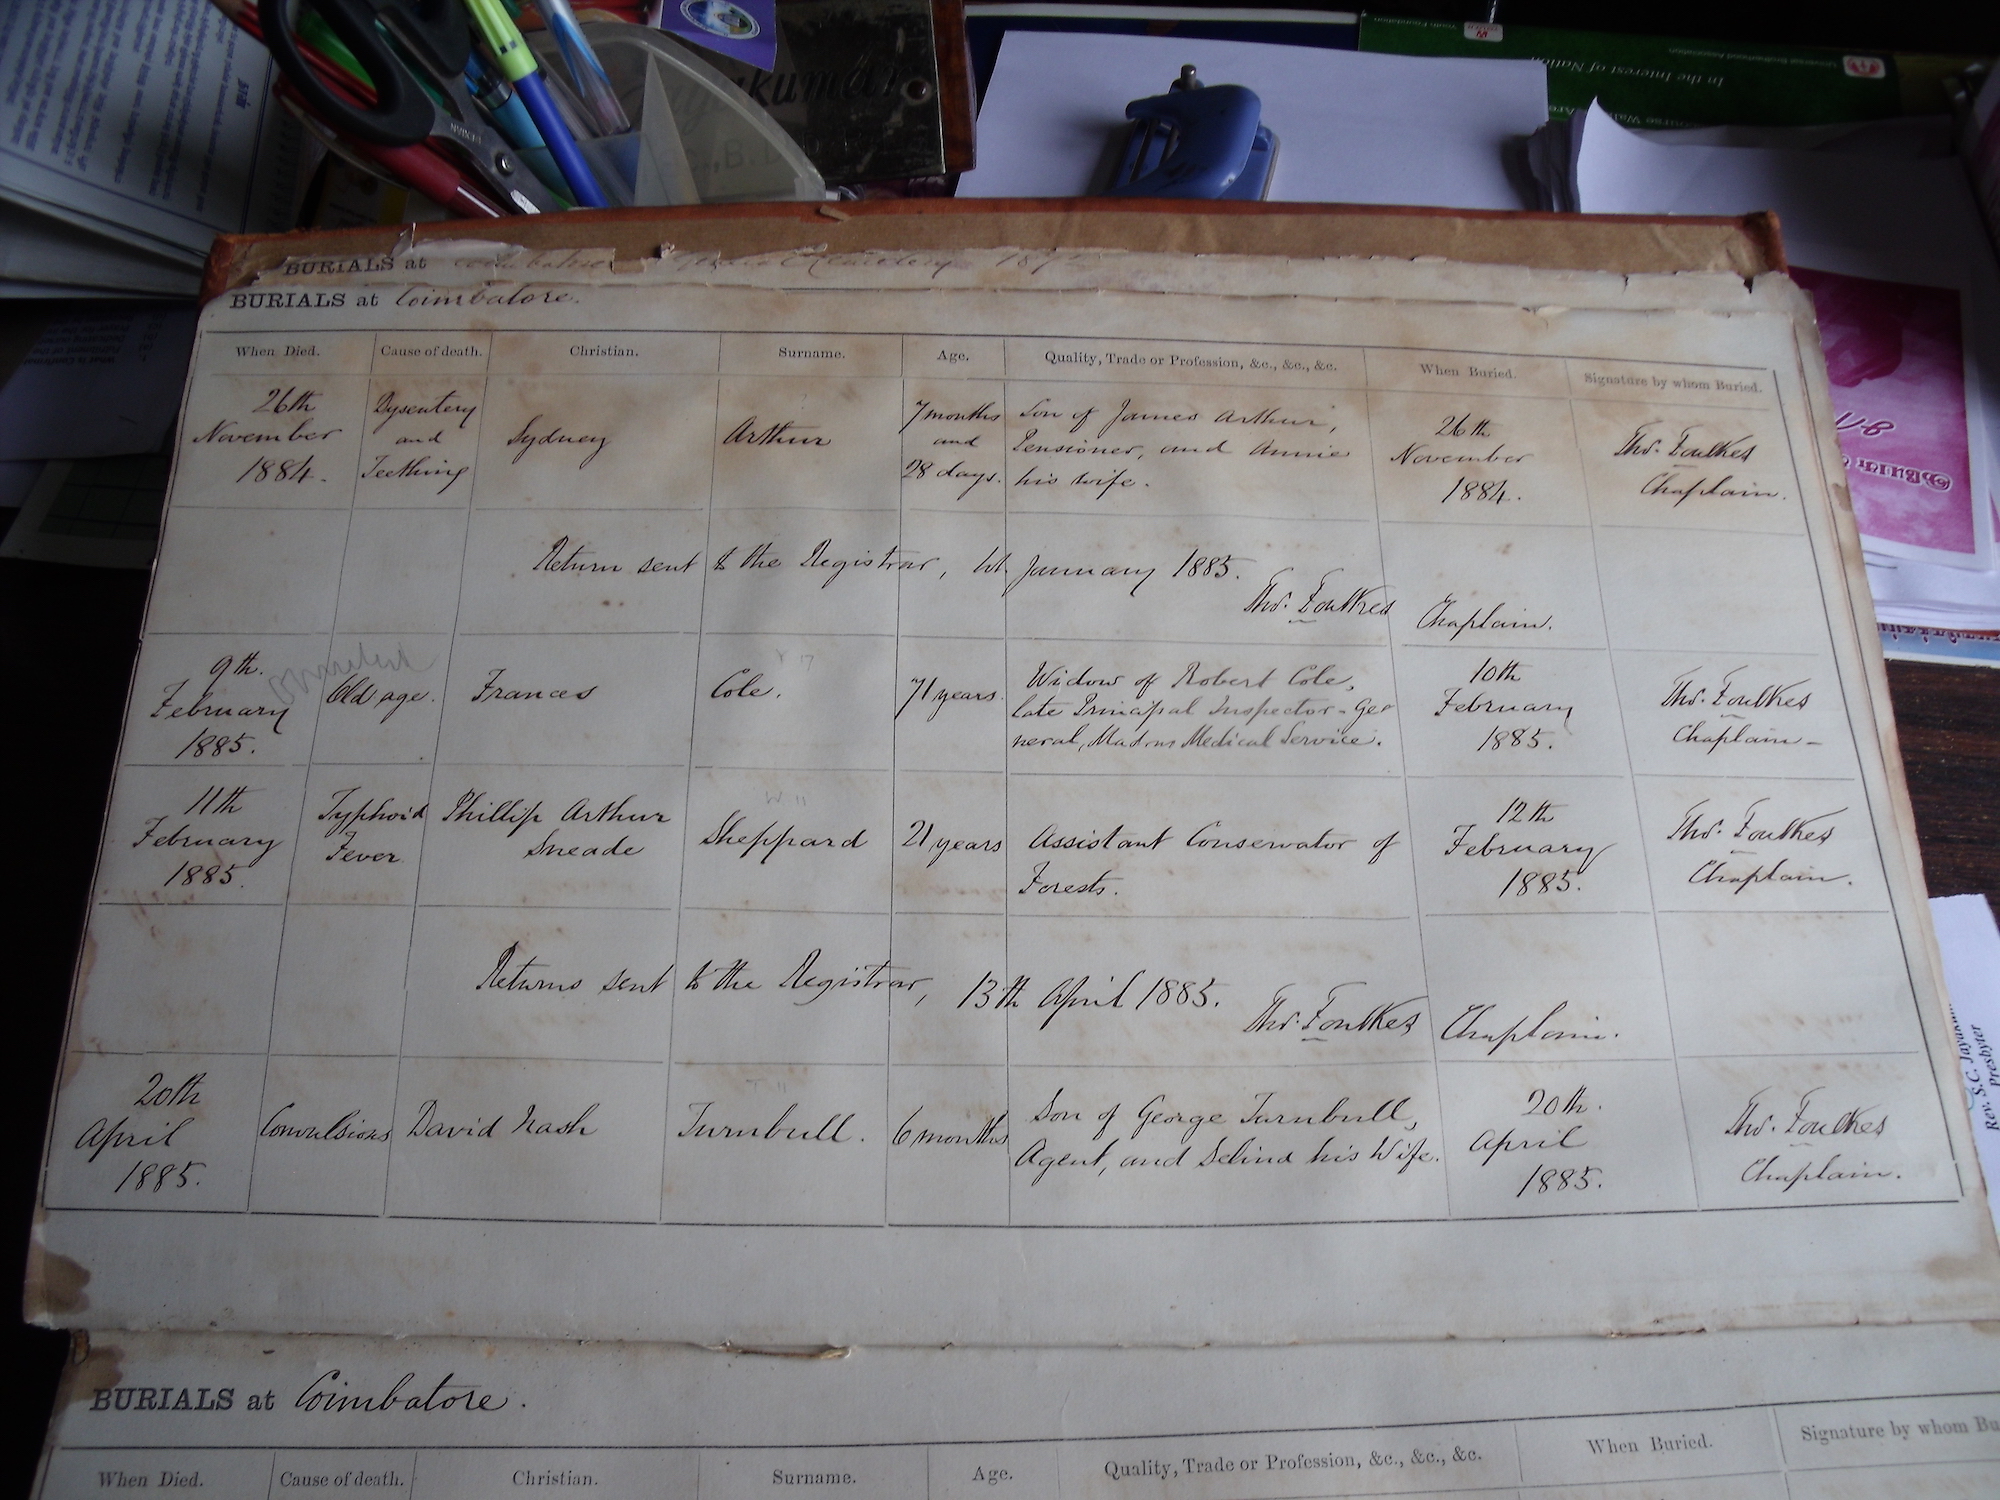 BURIALS at
BURIALS at Coimbatore.
When Died. Cause of death. Christian. Surname. Age. Quality, Trade or Profession, &c., &c., &c. When Buried. Signature by whom Buried.
26th November 1884. Dysentery and Teething Sydney Arthur 7 months and 28 days. Son of James Arthur, Pensioner, and Annie his wife. 26th November 1884. Thos. Foulkes Chaplain.
Return sent to the Registrar, 1st. January 1885.
Thos. Foulkes Chaplain.
9th. February 1885. Old age. Frances Cole. 71 years. Widow of Robert Cole, late Principal Inspector-General, Madras Medical Service. 10th February 1885. Thos. Foulkes Chaplain-
11th February 1885. Typhoid Fever Phillip Arthur Sneade Sheppard 21 years Assistant Conservator of Forests. 12th February 1885. Thos. Foulkes Chaplain.
Returns sent to the Registrar, 13th April 1885.
Thos. Foulkes Chaplain.
20th April 1885. Convulsions David Nash Turnbull. 6 months Son of George Turnbull, Agent, and Selina his Wife. 20th. April 1885. Thos. Foulkes Chaplain.
BURIALS at Coimbatore.
When Died. Cause of death. Christian. Surname. Age. Quality, Trade or Profession, &c., &c., &c. When Buried. Signature by whom Bu
In the Interest of Nation
Rev. S.C. Jayaku
Presbyter